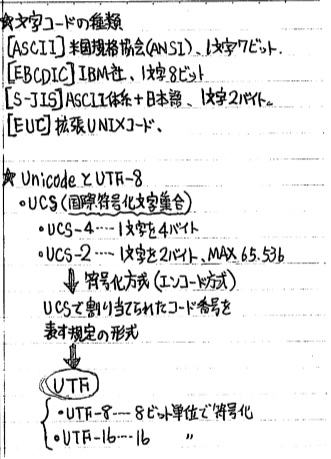 ☆文字コードの種類
[ASCII]米国規格協会(ANSI)、1文字7ビット.
[EBCDIC]IBM社、1文字8ビット
[S-JIS]ASCII体系+日本語、1文字2バイト。
[EUC]拡張UNIXコード、
☆UnicodeとUTF-8
・UCS(国際符号化文字集合)
・UCS-4‥‥1文字を4バイト
・UCS-2‥‥1文字を2バイト、MAX 65.536
↓符号化方式(エンコード方式)
UCSで割り当てられたコード番号を
表す規定の形式
↓
UTF
・UTF-8‥‥8ビット単位で符号化
・UTF-16‥‥16 〃